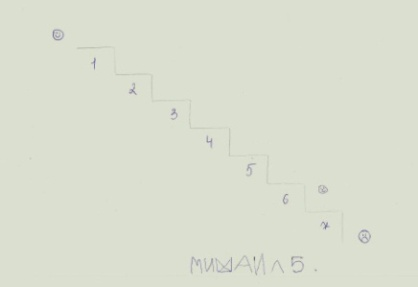 1
2
3
4
5
6
7
МИХАИЛ 5.